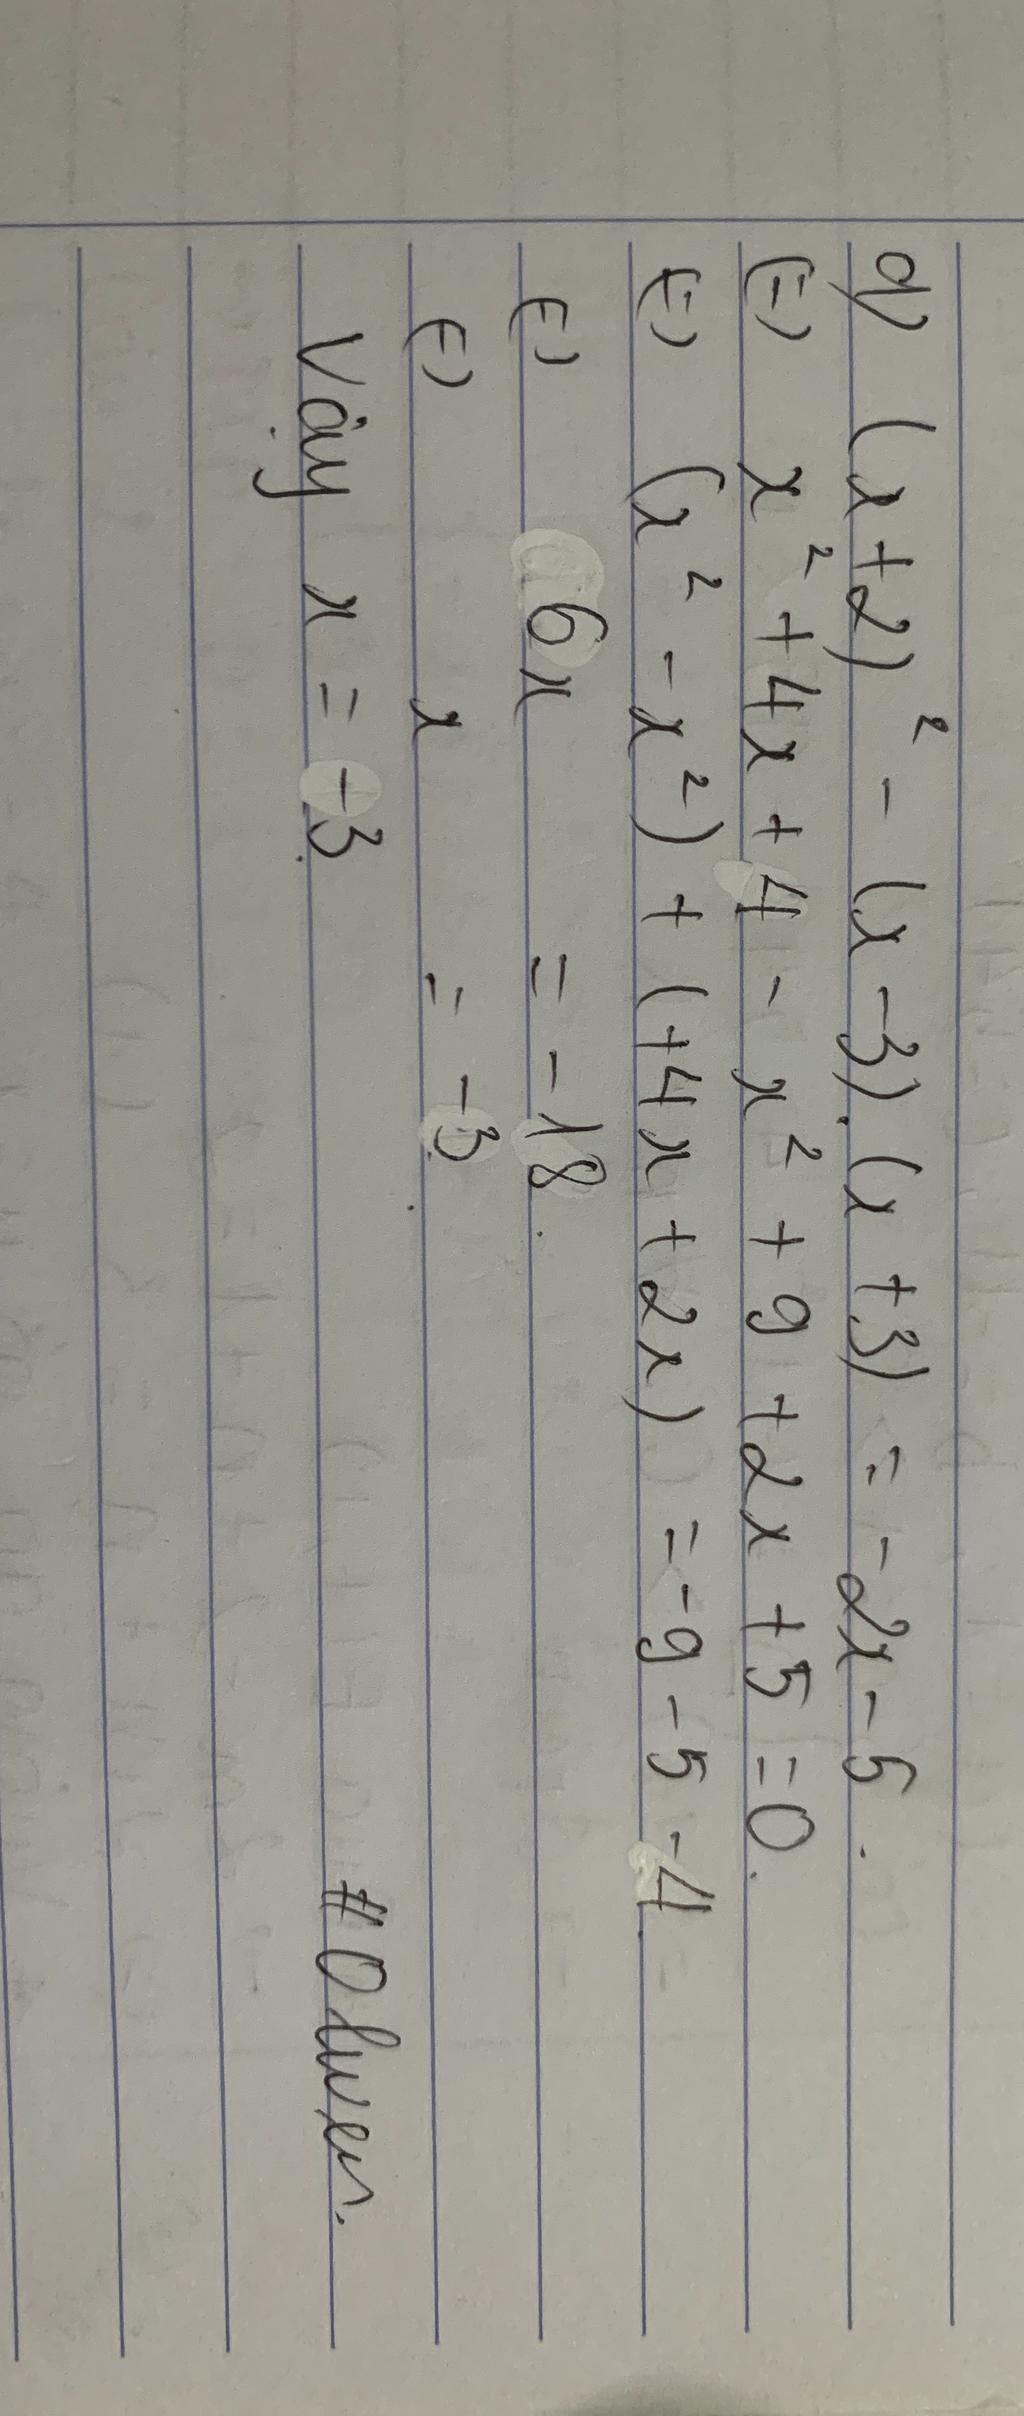 d) (x+2)² - (x-3).(x+3) = -2x-5.
(=) x² + 4x + 4 - x² + 9 + 2x + 5 = 0.
(=) (x² - x²) + (+4x + 2x) = -9 - 5 - 4
(=) 6x = -18.
(=) x = -3.
Vậy x = -3.
#Oliver.